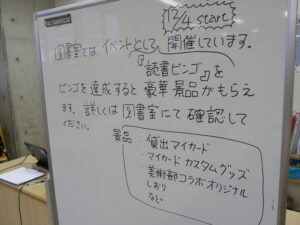 12/4 start
図書室ではイベントとして開催しています。
『読書ビンゴ』を
ビンゴを達成すると豪華景品がもらえ
ます。詳しくは図書室にて確認して
ください。
景品
・貸出マイカード
・マイカードカスタムグッズ
・美術部コラボオリジナル
しおり
など